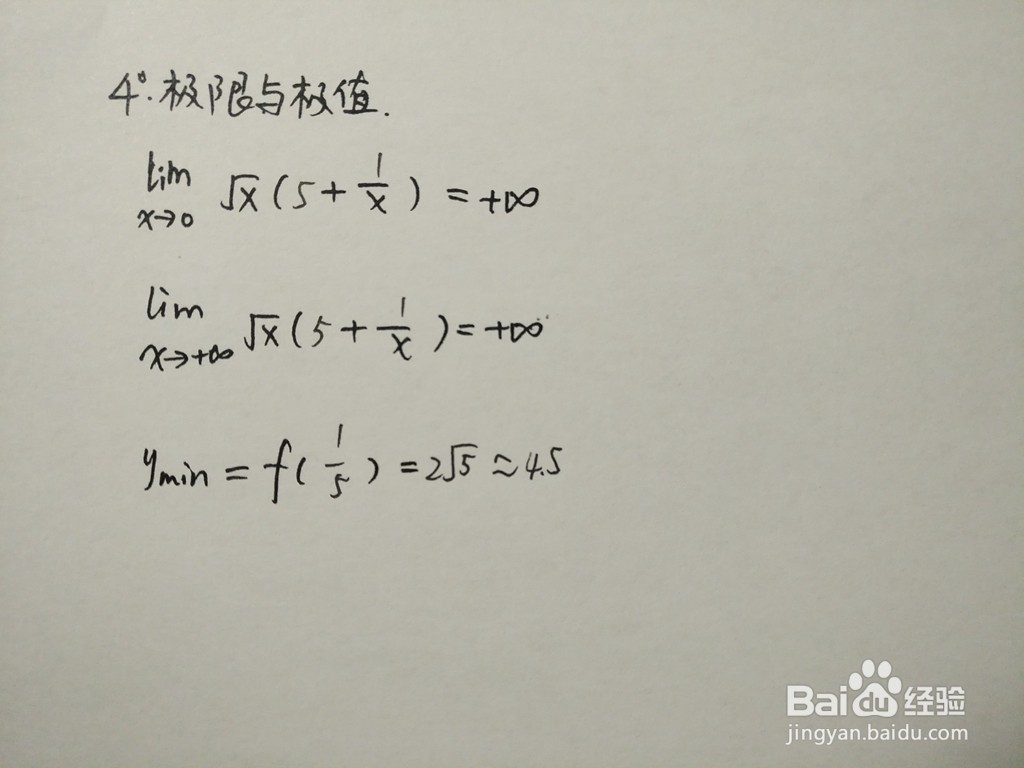 4°.极限与极值.
lim x→0 √x(5+1/x)=+∞
lim x→+∞ √x(5+1/x)=+∞
ymin=f(1/5)=2√5≈4.5
Baidu经验
jingyan.baidu.com